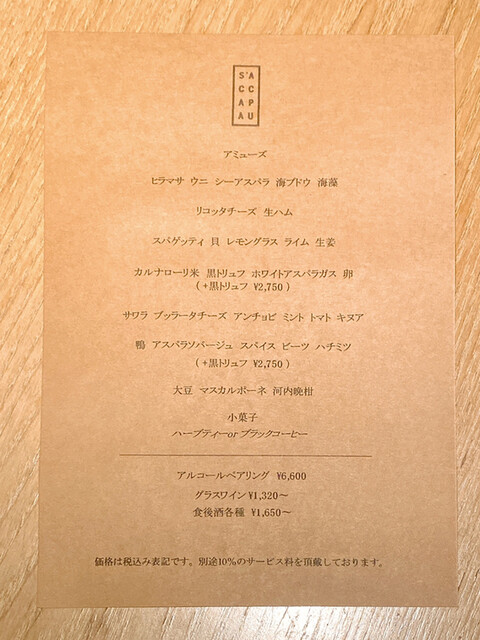 S'ACCAPU
CCAA
アミューズ
ヒラマサ ウニ シーアスパラ 海ブドウ 海藻
リコッタチーズ 生ハム
スパゲッティ 貝 レモングラス ライム 生姜
カルナローリ米 黒トリュフ ホワイトアスパラガス 卵
(+黒トリュフ ¥2,750)
サワラ ブッラータチーズ アンチョビ ミント トマト キヌア
鴨 アスパラソバージュ スパイス ビーツ ハチミツ
(+黒トリュフ ¥2,750)
大豆 マスカルポーネ 河内晩柑
小菓子
ハーブティーorブラックコーヒー
アルコールペアリング ¥6,600
グラスワイン¥1,320〜
食後酒各種 ¥1,650〜
価格は税込み表記です。別途10%のサービス料を頂戴しております。